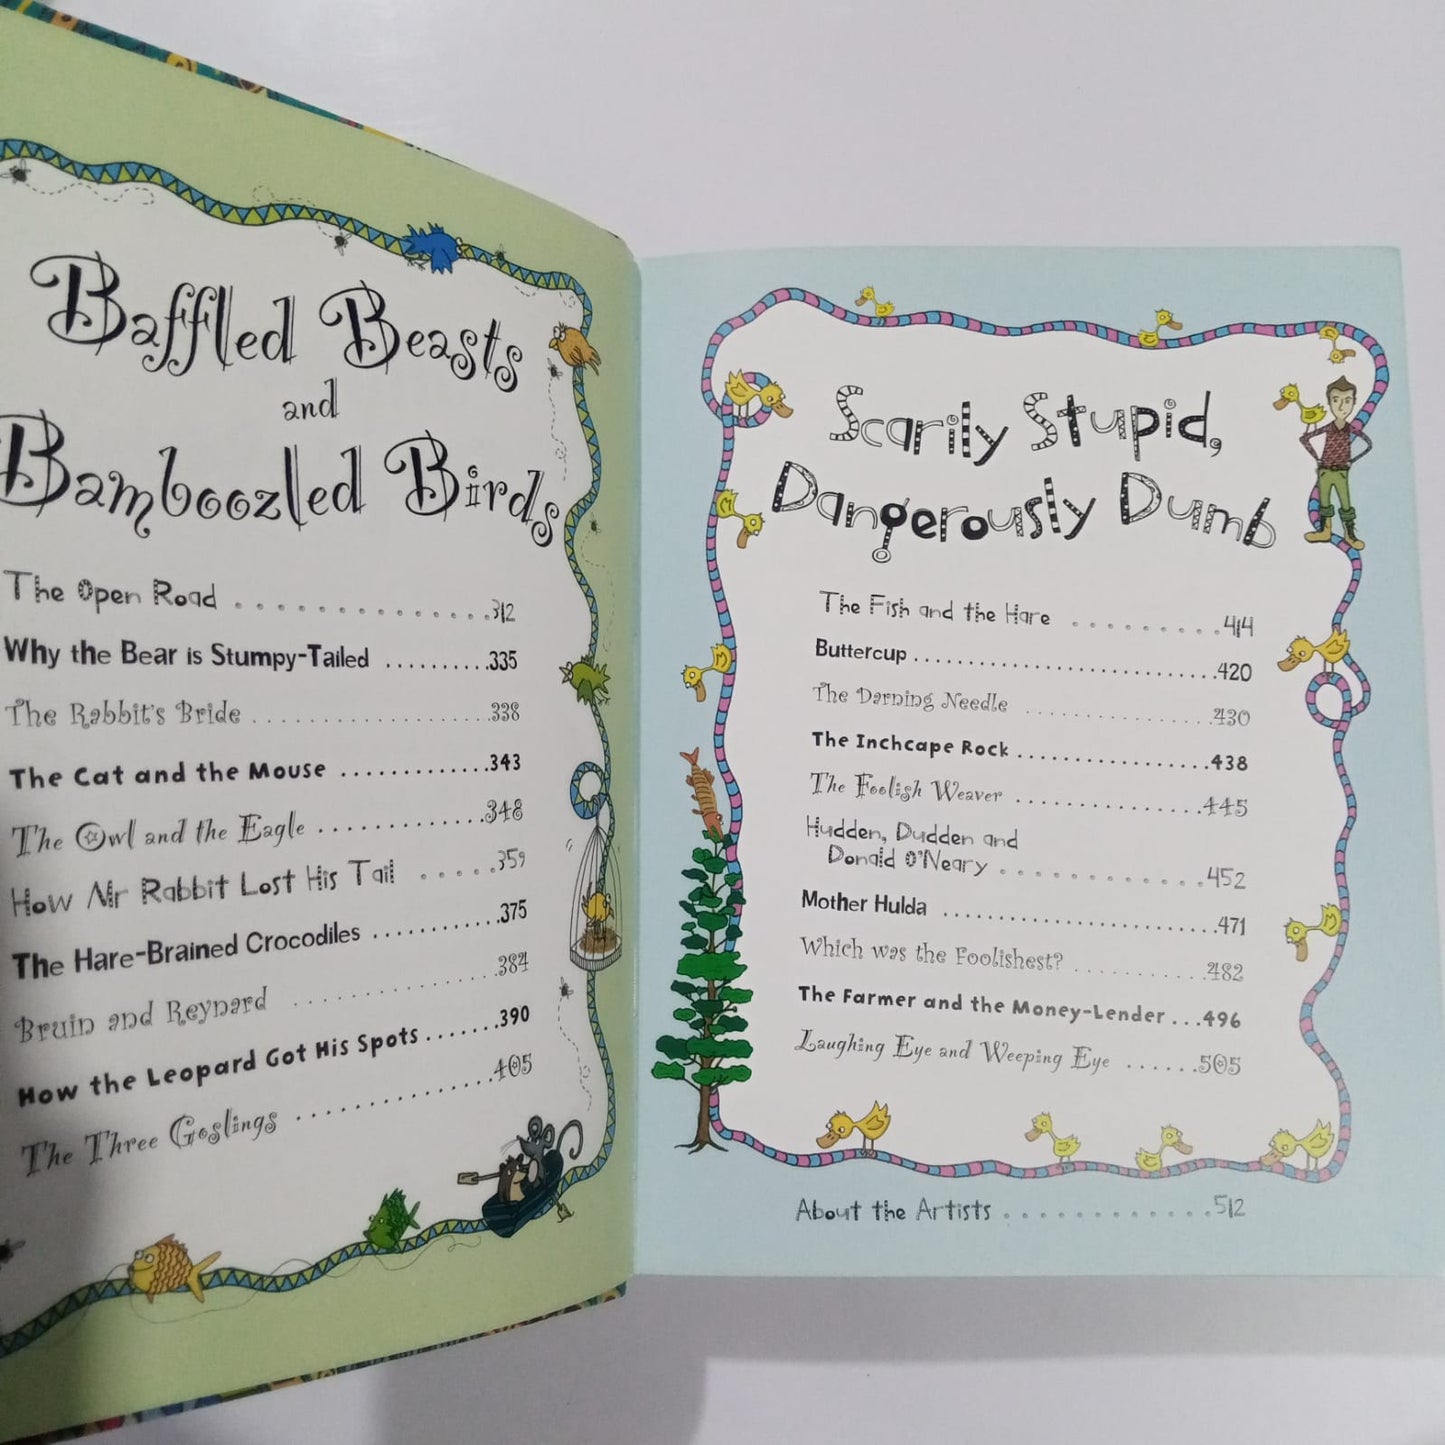 Baffled Beasts
and
Bamboozled Birds
The Open Road . . . . . . . . . . . . . . .312
Why the Bear is Stumpy-Tailed ..........335
The Rabbit's Bride ....................338
The Cat and the Mouse .............343
The Owl and the Eagle ..............348
How Mr Rabbit Lost His Tail .....359
The Hare-Brained Crocodiles ............375
Bruin and Reynard .................384
How the Leopard Got His Spots.......390
The Three Goslings .................405
Scarily Stupid,
Dangerously Dumb
The Fish and the Hare .........414
Buttercup............................420
The Darning Needle ................430
The Inchcape Rock................438
The Foolish Weaver ................445
Hudden, Dudden and
Donald O'Neary............452
Mother Hulda .........................471
Which was the Foolishest? ...........482
The Farmer and the Money-Lender ...496
Laughing Eye and Weeping Eye ......505
About the Artists ............512